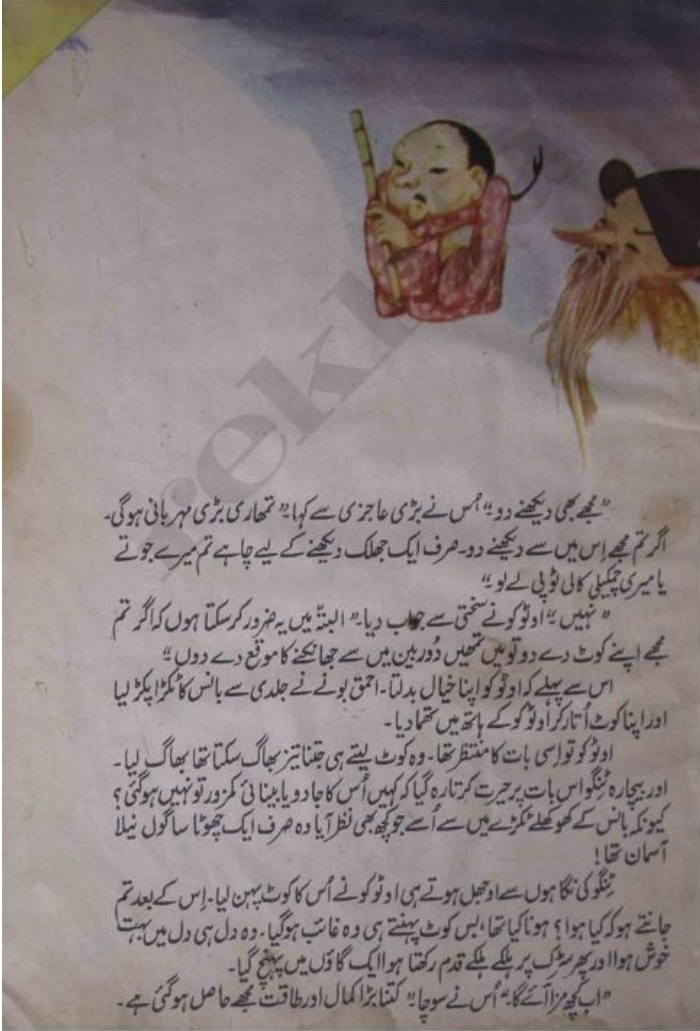 rekh
"مجھے بھی دیکھنے دو۔" اُس نے بڑی عاجزی سے کہا۔ "تمھاری بڑی مہربانی ہوگی۔
اگر تم مجھے اِس میں سے دیکھنے دو۔ صرف ایک جھلک دیکھنے کے لیے چاہے تم میرے جوتے
یا میری چمکیلی کالی ٹوپی لے لو۔"
"نہیں۔" اوٹوکو نے سختی سے جواب دیا۔ "البتّہ میں یہ ضرور کرسکتا ہوں کہ اگر تم
مجھے اپنے کوٹ دے دو تو میں تمھیں دُوربین میں سے جھانکنے کا موقع دے دوں۔"
اس سے پہلے کہ اوٹوکو اپنا خیال بدلتا۔ احمق بونے نے جلدی سے بانس کا ٹکڑا پکڑ لیا
اور اپنا کوٹ اُتار کر اوٹوکو کے ہاتھ میں تھما دیا۔
اوٹوکو تو اِسی بات کا منتظر تھا۔ وہ کوٹ لیتے ہی جتنا تیز بھاگ سکتا تھا بھاگ لیا۔
اور بیچارہ ٹِنگو اس بات پر حیرت کرتا رہ گیا کہ کہیں اُس کا جادو یا بینائی کمزور تو نہیں ہوگئی؟
کیونکہ بانس کے کھوکھلے ٹکڑے میں سے اُسے جو کچھ بھی نظر آیا وہ صرف ایک چھوٹا سا گول نیلا
آسمان تھا!
ٹِنگو کی نگاہوں سے اوجھل ہوتے ہی اوٹوکو نے اُس کا کوٹ پہن لیا۔ اِس کے بعد تم
جانتے ہو کہ کیا ہوا؟ ہونا کیا تھا، بس کوٹ پہنتے ہی وہ غائب ہوگیا۔ وہ دل ہی دل میں بہت
خوش ہوا اور پھر سڑک پر ہلکے ہلکے قدم رکھتا ہوا ایک گاؤں میں پہنچ گیا۔
"اب کچھ مزا آئے گا۔" اُس نے سوچا۔ "کتنا بڑا کمال اور طاقت مجھے حاصل ہوگئی ہے۔